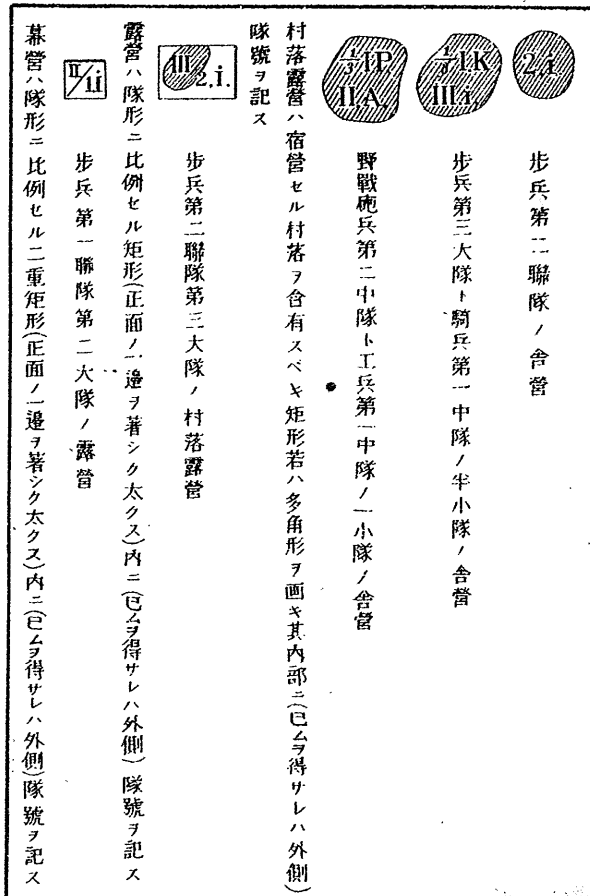 2.i. 步兵第二聯隊ノ舍營
1/8 I.K. III.i. 步兵第三大隊ト騎兵第一中隊ノ半小隊ノ舍營
1/3 I.P. II.A. 野戰砲兵第二中隊ト工兵第一中隊ノ一小隊ノ舍營
村落露營ハ宿營セル村落ヲ含有スベキ矩形若ハ多角形ヲ画キ其内部ニ(已ムヲ得サレハ外側)
隊號ヲ記ス
III/2.i. 步兵第二聯隊第三大隊ノ村落露營
露營ハ隊形ニ比例セル矩形(正面ノ一邊ヲ著シク太クス)内ニ(已ムヲ得サレハ外側)隊號ヲ記ス
II/1.i 步兵第一聯隊第二大隊ノ露營
幕營ハ隊形ニ比例セル二重矩形(正面ノ一邊ヲ著シク太クス)内ニ(已ムヲ得サレハ外側)隊號ヲ記ス